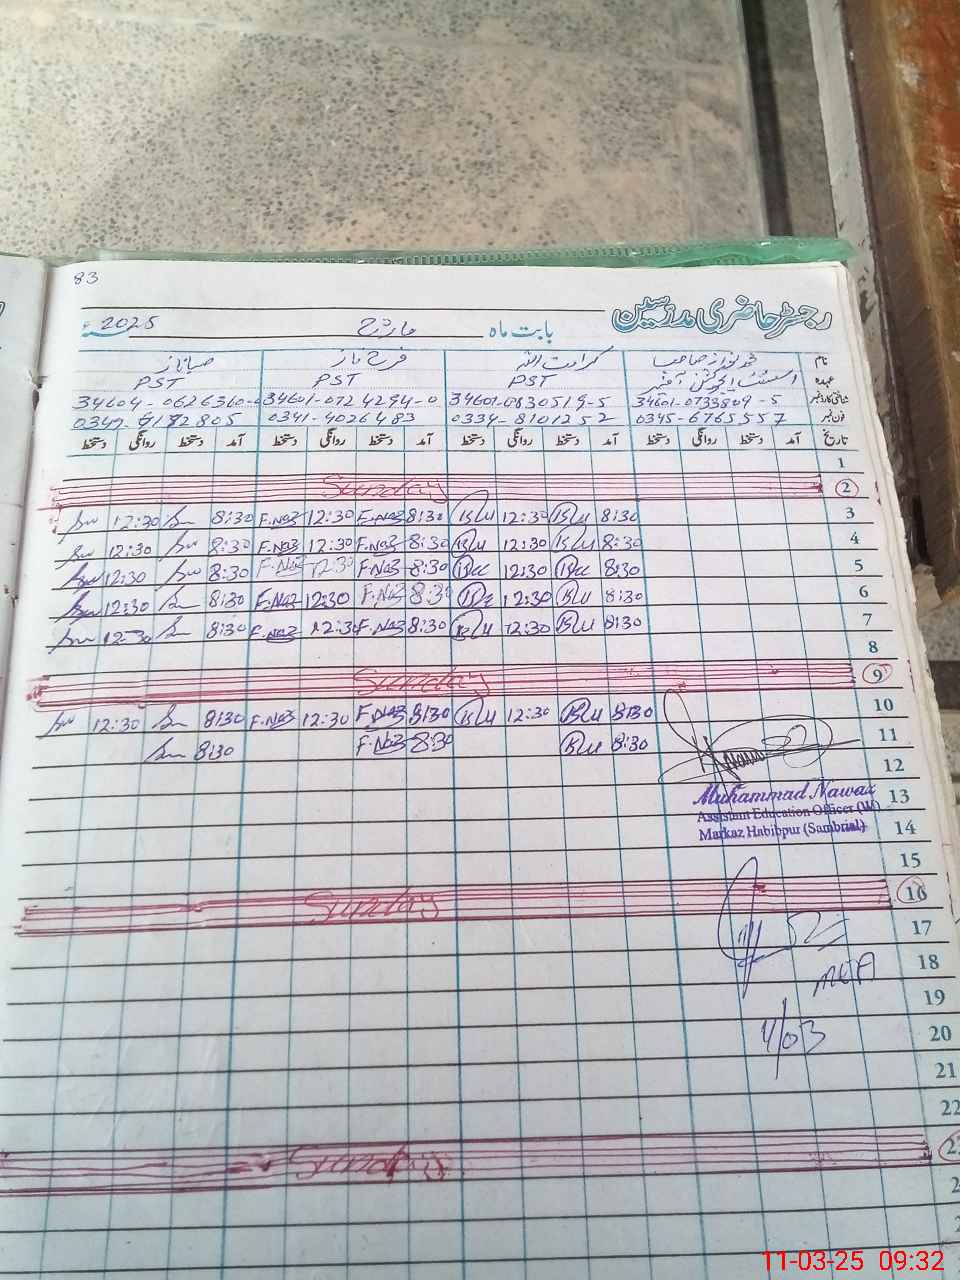 83
رجسٹر حاضری مدرسین
بابت ماہ مارچ 2025ء
نام محمد نواز صاحب کرامت اللہ فرح ناز صبا ناز
عہدہ اسسٹنٹ ایجوکیشن آفیسر PST PST PST
شناختی کارڈ نمبر 34601-0733809-5 34601-0830519-5 34601-0724294-0 34604-0626360-
فون نمبر 0345-6765557 0334-8101252 0341-4026483 0347-9182805
تاریخ آمد دستخط روانگی دستخط آمد دستخط روانگی دستخط آمد دستخط روانگی دستخط آمد دستخط روانگی دستخط
1
Sunday 2
12:30 8:30 F.Naz 12:30 F.Naz 8:30 12:30 8:30 3
12:30 8:30 F.Naz 12:30 F.Naz 8:30 12:30 8:30 4
12:30 8:30 F.Naz 12:30 F.Naz 8:30 12:30 8:30 5
12:30 8:30 F.Naz 12:30 F.Naz 8:30 12:30 8:30 6
12:30 8:30 F.Naz 12:30 F.Naz 8:30 12:30 8:30 7
8
Sunday 9
12:30 8:30 F.Naz 12:30 F.Naz 8:30 12:30 8:30 10
8:30 F.Naz 8:30 8:30 11
12
Muhammad Nawaz 13
Assistant Education Officer (W)
Markaz Habibpur (Sambrial) 14
15
Sunday 16
17
MEA 18
19
11/03 20
21
22
Sunday 23
11-03-25 09:32